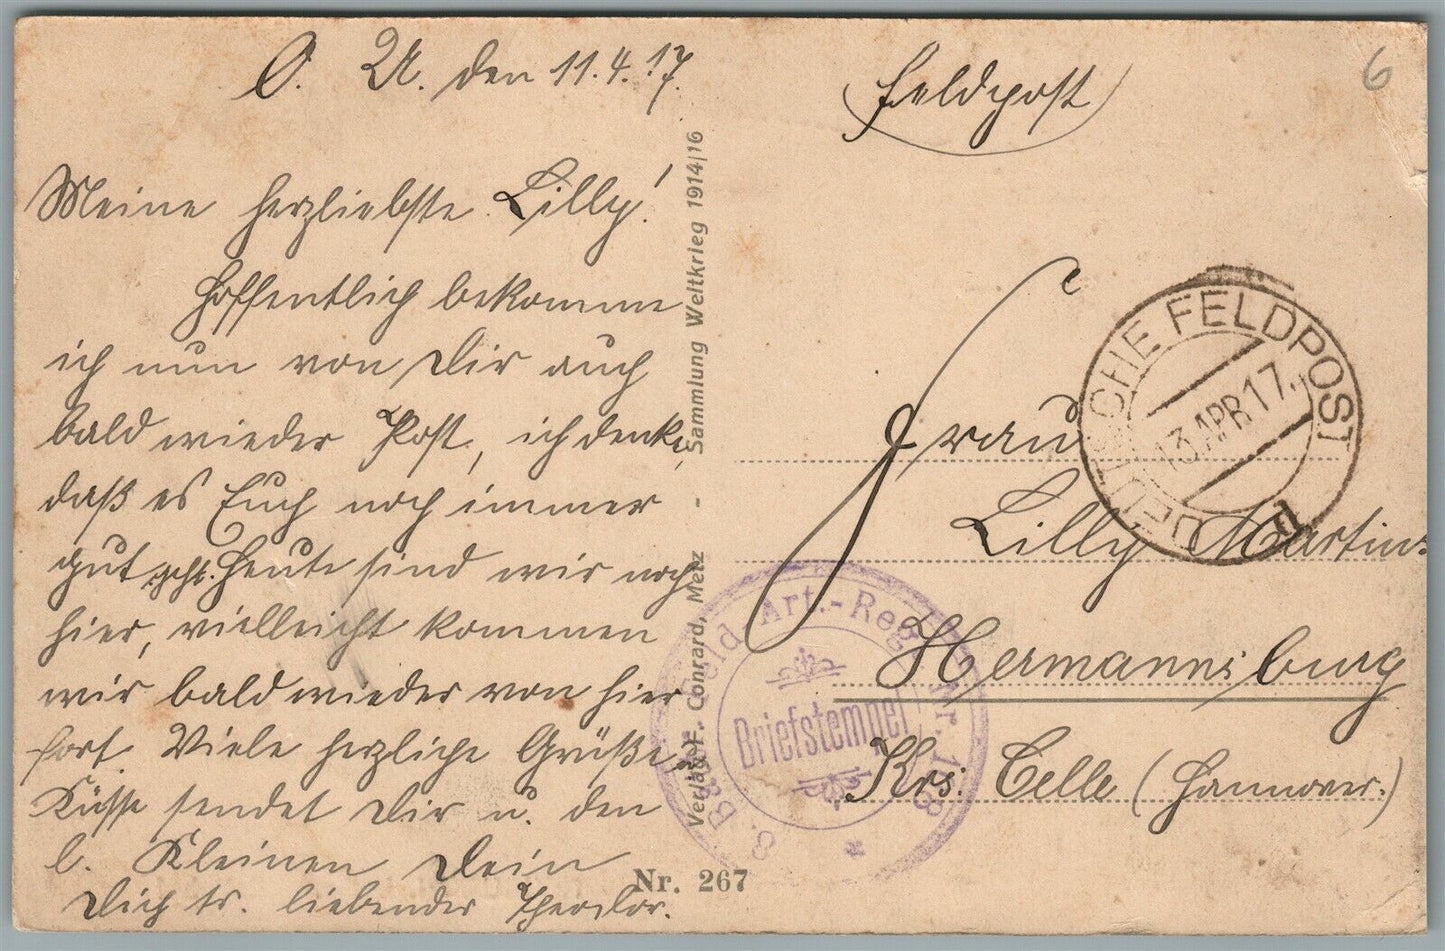 O. U. den 11.4.17.
Meine herzliebste Lilly!
Hoffentlich bekomme
ich nun von Dir auch
bald wieder Post, ich denke,
daß es Euch noch immer
gut geht. Heute sind wir noch
hier, vielleicht kommen
wir bald wieder von hier
fort. Viele herzliche Grüße u.
Küsse sendet Dir u. den
l. Kleinen Dein
Dich tr. liebender Theodor.
Sammlung Weltkrieg 1914/16
Verlag F. Conrard, Metz -
Nr. 267
Feldpost
6
DEUTSCHE FELDPOST
13 APR 17.
Frau
Lilly Martin
Hermannsburg
Krs. Celle (Hannover.)
Feld Art.-Reg. Nr.
Briefstempel